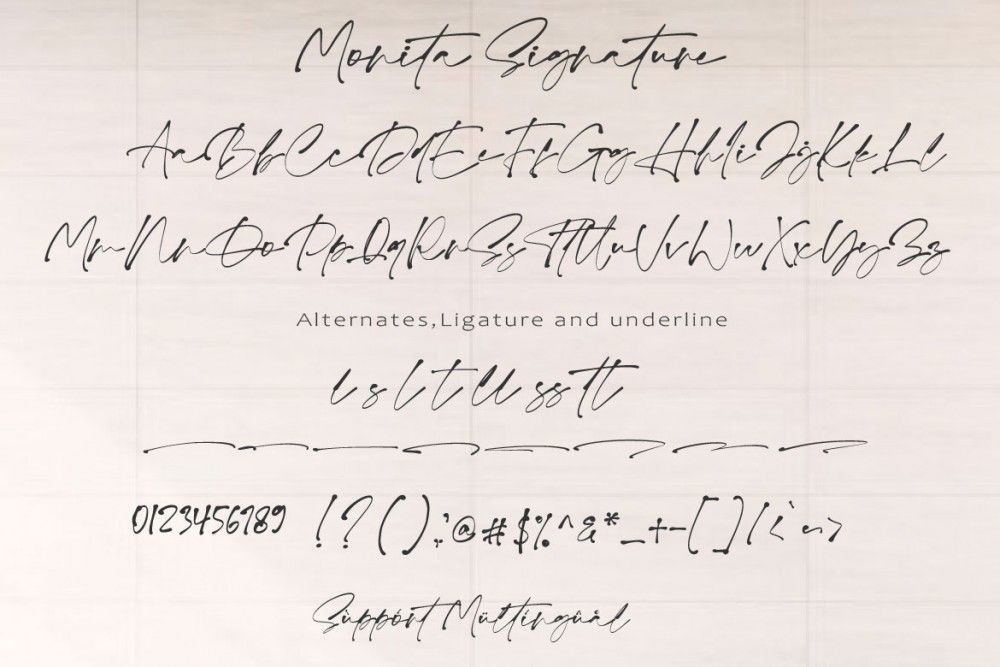 Monita Signature
AaBbCcDdEeFfGgHhIiJjKkLl
MmNnOoPpQqRrSsTtUuVvWwXxYyZz
Alternates,Ligature and underline
l s l t ll ss tt
0123456789 !?():;'@#$%^&*_+-[]/<`~>
Sùppórt Mültíngùàl